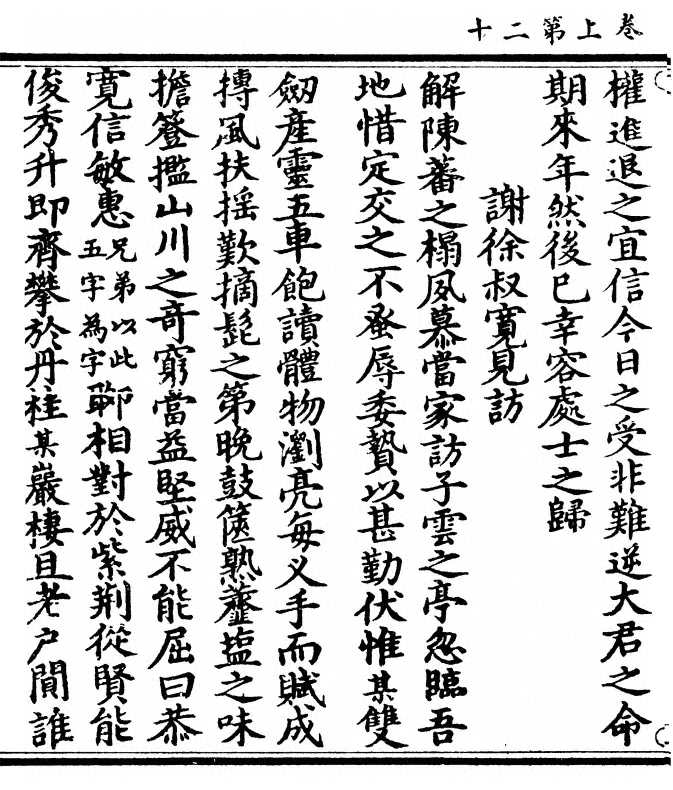 卷上第二十
權進退之宜信今日之受非難逆大君之命
期來年然後已幸容處士之歸
謝徐叔寬見訪
解陳蕃之榻夙慕當家訪子雲之亭忽臨吾
地惜定交之不蚤辱委贄以甚勤伏惟某雙
劒産靈五車飽讀體物瀏亮每义手而賦成
摶風扶摇歎摘髭之第晚鼓篋熟虀塩之味
擔簦擥山川之奇窮當益堅威不能屈曰恭
寬信敏惠兄弟以此五字為字聊相對於紫荆從賢能
俊秀升即齊攀於丹桂某巖棲且老户閴誰